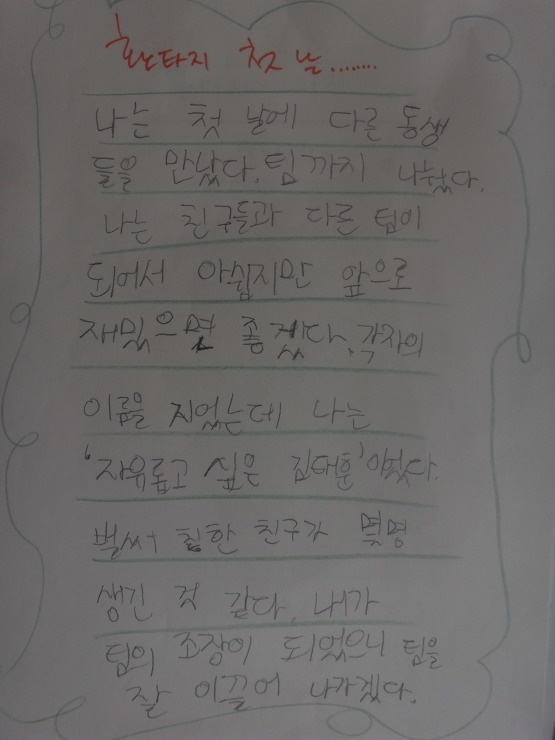 환타지 첫 날.......
나는 첫 날에 다른 동생
들을 만났다. 팀까지 나눴다.
나는 친구들과 다른 팀이
되어서 아쉽지만 앞으로
재밌으면 좋겠다. 각자의
이름을 지었는데 나는
'자유롭고 싶은 김태훈'이었다.
벌써 친한 친구가 몇명
생긴 것 같다. 내가
팀의 조장이 되었으니 팀을
잘 이끌어 나가겠다.